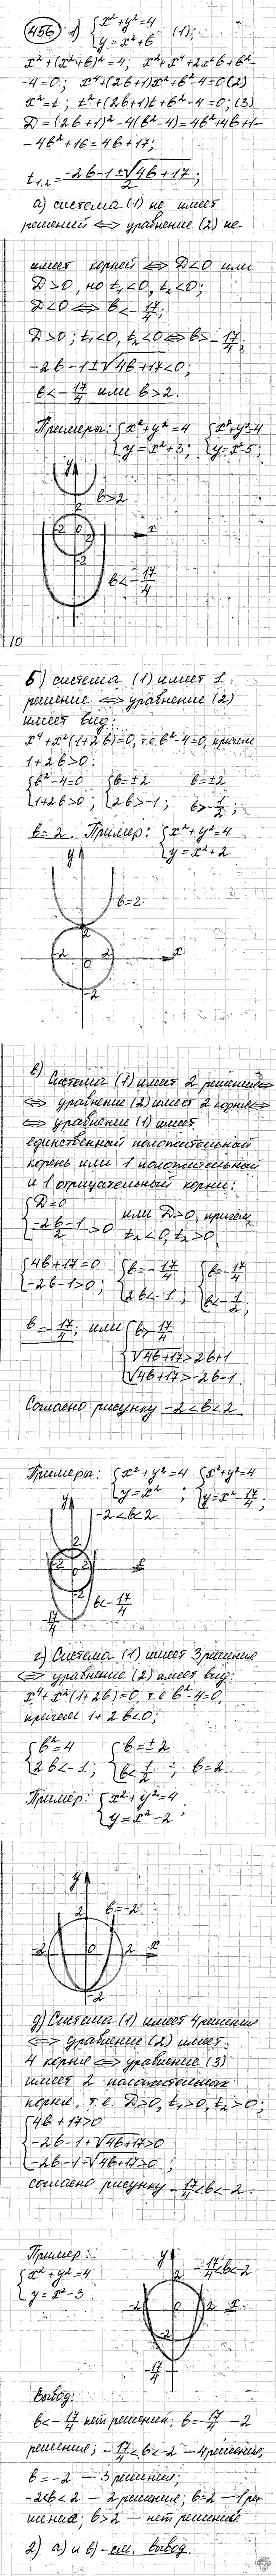 456 1) { x²+y²=4
y=x²+b (1);
x²+(x²+b)²=4; x²+x⁴+2x²b+b²-
-4=0; x⁴+(2b+1)x²+b²-4=0 (2)
x²=t; t²+(2b+1)t+b²-4=0; (3)
D=(2b+1)²-4(b²-4)=4b²+4b+1-
-4b²+16=4b+17;
t₁,₂=(-2b-1±√4b+17)/2;
а) система (1) не имеет
решений ⇔ уравнение (2) не-
имеет корней ⇔ D<0 или
D>0, но t₁<0, t₂<0;
D<0 ⇔ b<-17/4;
D>0; t₁<0, t₂<0 ⇔ b>-17/4;
-2b-1±√4b+17<0;
b<-17/4 или b>2.
Примеры: { x²+y²=4 { x²+y²=4
y=x²+3; y=x²-5;
y
b>2
2
-2 0 2 x
-2
b<-17/4
10
б) система (1) имеет 1
решение ⇔ уравнение (2)
имеет вид:
x⁴+x²(1+2b)=0, т.е b²-4=0, причем
1+2b>0:
{ b²-4=0 { b=±2 b=±2
1+2b>0; 2b>-1; b>-1/2;
b=2. Пример: { x²+y²=4
y=x²+2
y
b=2
2
-2 2 x
0
-2
в) Система (1) имеет 2 решения ⇔
⇔ уравнение (2) имеет 2 корня ⇔
⇔ уравнение (1) имеет
единственный положительный
корень или 1 положительный
и 1 отрицательный корни:
{ D=0
(-2b-1)/2>0 или D>0, причем,
t₁<0, t₂>0;
{ 4b+17=0 { b=-17/4 { b=-17/4
-2b-1>0; 2b<-1; b<-1/2;
b=-17/4; или { b>-17/4
√4b+17>2b+1
√4b+17>-2b-1.
Согласно рисунку -2<b<2
Примеры: { x²+y²=4 { x²+y²=4
y=x² ; y=x²-17/4;
y
-2<b<2
2
-2 2 x
0
-2
-17/4
b<-17/4
г) Система (1) имеет 3 решения
⇔ уравнение (2) имеет вид:
x⁴+x²(1+2b)=0, т.е b²-4=0,
причем 1+2b<0;
{ b²=4 { b=±2
2b<-1; b<1/2 ; b=2.
Пример: { x²+y²=4
y=x²-2 ;
y
b=-2.
2
-2 0 2 x
-2
д) Система (1) имеет 4 решения
⇔ уравнение (2) имеет
4 корня ⇔ уравнение (3)
имеет 2 положительных
корня, т.е. D>0, t₁>0, t₂>0;
{ 4b+17>0
-2b-1+√4b+17>0
-2b-1-√4b+17>0 ;
согласно рисунку -17/4<b<-2.
Пример:
{ x²+y²=4
y=x²-3.
y
-17/4<b<-2
2
-2 0 2 x
-2
-17/4
Вывод:
b<-17/4 нет решений; b=-17/4 - 2
решения; -17/4<b<-2 - 4 решения,
b=-2 - 3 решения;
-2<b<2 - 2 решения; b=2 - 1 ре-
шение; b>2 - нет решений.
2) а) и в) - см. вывод.